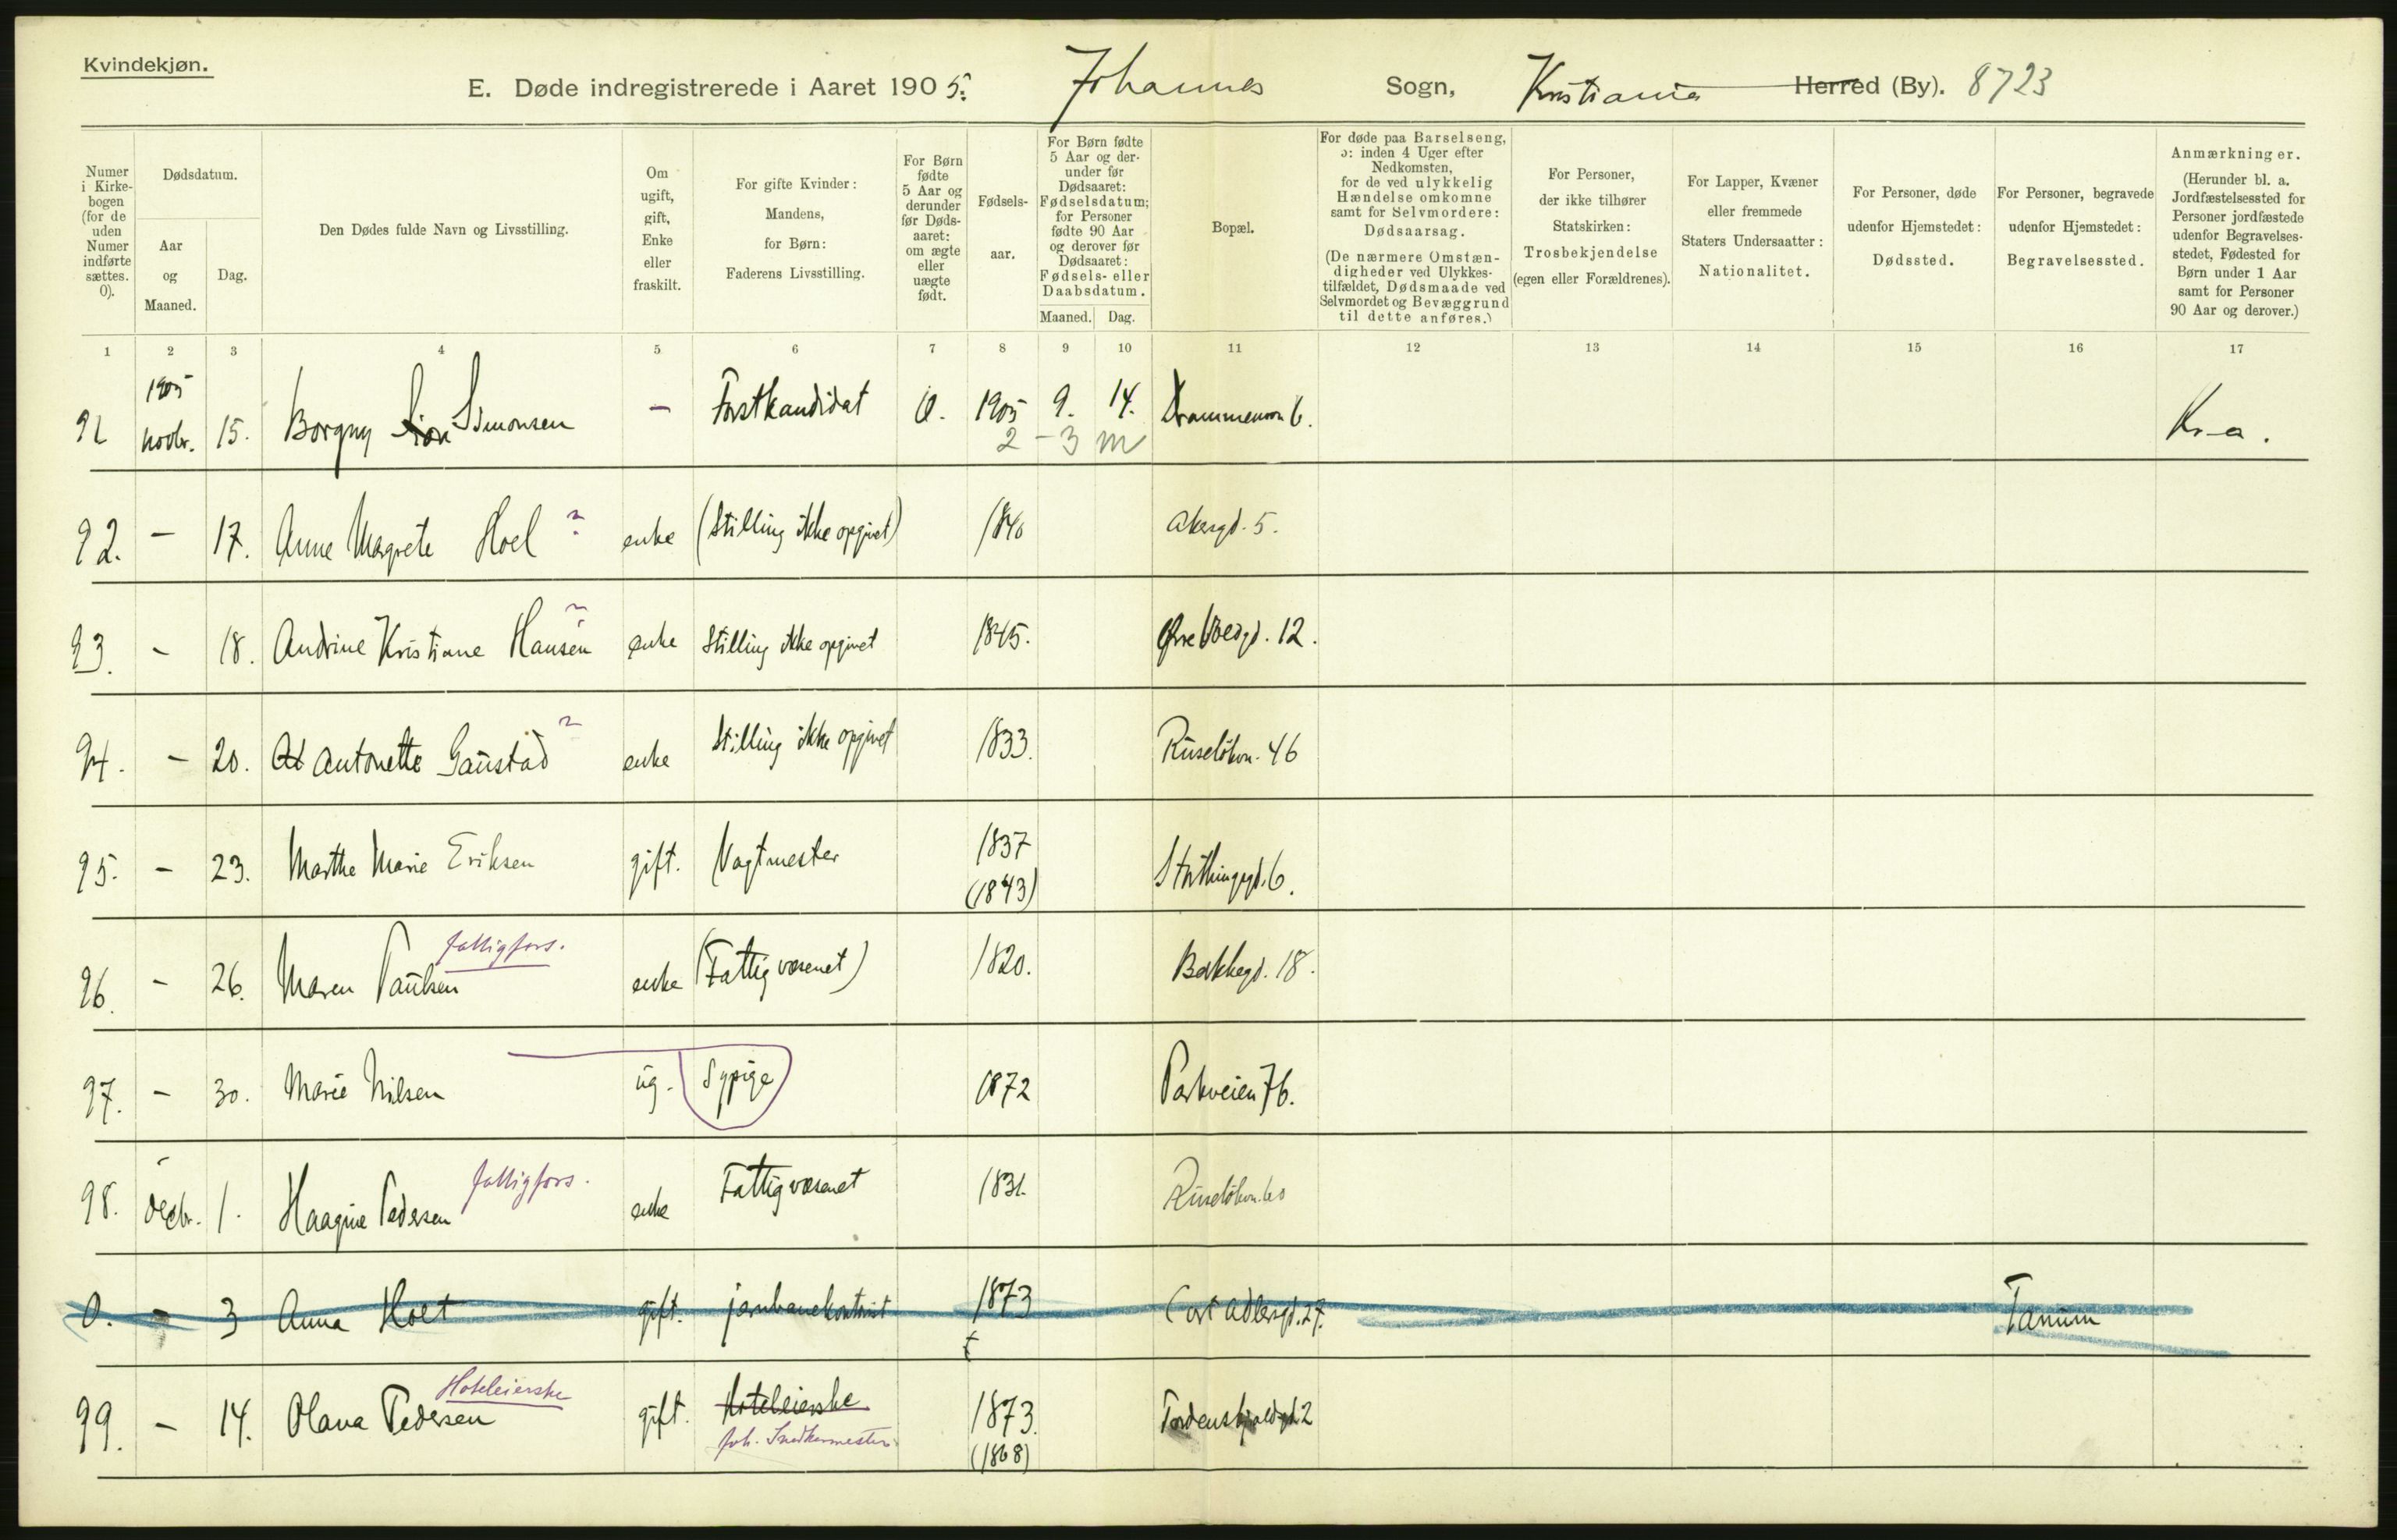 Kvindekjøn.
E. Døde indregistrerede i Aaret 1905. Johannes Sogn, Kristiania Herred (By). 8723
Numer i Kirke-bogen (for de uden Numer indførte sættes. 0).
Dødsdatum.
Aar og Maaned.
Dag.
Den Dødes fulde Navn og Livsstilling.
Om ugift, gift, Enke eller fraskilt.
For gifte Kvinder: Mandens, for Børn: Faderens Livsstilling.
For Børn fødte 5 Aar og derunder før Døds-aaret: om ægte eller uægte født.
Fødsels-aar.
For Børn fødte 5 Aar og der-under før Dødsaaret: Fødselsdatum; for Personer fødte 90 Aar og derover før Dødsaaret: Fødsels- eller Daabsdatum.
Maaned. Dag.
Bopæl.
For døde paa Barselseng, ɔ: inden 4 Uger efter Nedkomsten, for de ved ulykkelig Hændelse omkomne samt for Selvmordere: Dødsaarsag.
(De nærmere Omstæn-digheder ved Ulykkes-tilfældet, Dødsmaade ved Selvmordet og Bevæggrund til dette anføres.)
For Personer, der ikke tilhører Statskirken: Trosbekjendelse (egen eller Forældrenes).
For Lapper, Kvæner eller fremmede Staters Undersaatter: Nationalitet.
For Personer, døde udenfor Hjemstedet: Dødssted.
For Personer, begravede udenfor Hjemstedet: Begravelsessted.
Anmærkninger.
(Herunder bl. a. Jordfæstelsessted for Personer jordfæstede udenfor Begravelses-stedet, Fødested for Børn under 1 Aar samt for Personer 90 Aar og derover.)
1 2 3 4 5 6 7 8 9 10 11 12 13 14 15 16 17
1905
91 novbr. 15. Borgny Simonsen - Forstkandidat 1905 9. 14. Drammensvn 6. Kr-a.
2 - 3 m
92. - 17. Anne Margrete Hoel enke (Stilling ikke opgivet) 1840 Akersgd. 5.
93. - 18. Andrine Kristiane Hansen enke Stilling ikke opgivet 1845. Øvre Voldgd. 12.
94. - 20. Antonette Gaustad enke Stilling ikke opgivet 1833. Ruseløkvn. 46
95. - 23. Marthe Marie Eriksen gift. Vagtmester 1837 (1843) Storthingsgd. 6.
fattigfors.
96. - 26. Maren Paulsen enke (Fattigvæsenet) 1820. Bakkegd. 18.
97. - 30. Marie Nilsen ug. Sypige 1872 Parkveien 76.
fattigfors.
98. decbr. 1. Haagine Pedersen enke Fattigvæsenet 1831. Ruseløkvn. 60
0. - 3 Anna Holt gift. jernbanekontorist 1873 Cort Adlersgd. 27. Tanum
Hoteleierske
99. - 14. Olava Pedersen gift. Hoteleierske 1873. Tordenskjoldsgd 2
Snedkermester (1868)